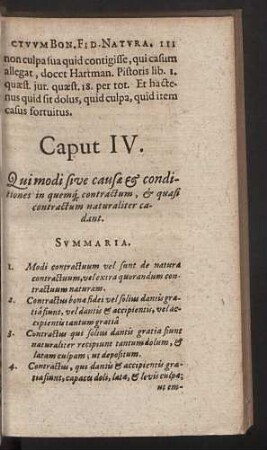 CTVVM BON. FID. NATVRA. 111
non culpa sua quid contigisse, qui casum
allegat, docet Hartman. Pistoris lib. 1.
quæst. jur. quæst. 18. per tot. Et hacte-
nus quid sit dolus, quid culpa, quid item
casus fortuitus.
Caput IV.
Qui modi sive causæ & condi-
tiones in quemq; contractum, & quasi
contractum naturaliter ca-
dant.
SVMMARIA.
1. Modi contractuum vel sunt de natura
contractuum, vel extra quorundam con-
tractuum naturam.
2. Contractus bonæ fidei vel solius dantis gra-
tiâ fiunt, vel dantis & accipientis, vel ac-
cipientis tantum gratiâ
3. Contractus qui solius dantis gratia fiunt
naturaliter recipiunt tantum dolum, &
latam culpam; ut depositum.
4. Contractus, qui dantis & accipientis gra-
tia fiunt, capaces doli, latæ, & levis culpæ;
ut em-